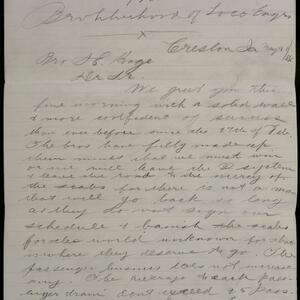 Brotherhood of Loco Engrs
x
Creston Ia
Bro S. E. Hoge
Dr Sir
We greet you this
fine morning with a solid wall
& more confident of success
than ever before since the 27th of Feb.
The bros have fully made up
their minds that we must win
or we will leave the system
& leave the road to the mercy of
the scabs for there is not a man
that will go back so long
as they do not sign our
schedule & banish the scabs
for the world unknown for that
is where they deserve to go. The
passenger business does not increase
any. The average
train don't exceed 25 pass